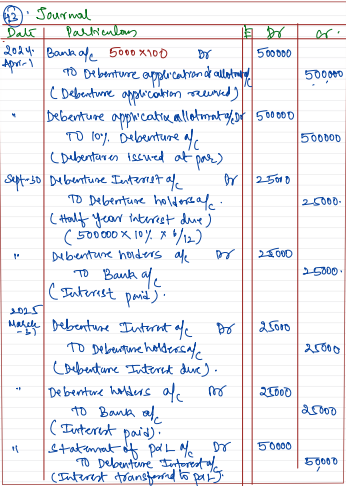 43. Journal
Date Particulars Dr Cr.
2024 Bank a/c 5000 x 100 Dr 500000
Apr-1 TO Debenture application & allotment a/c 500000
(Debenture application received)
" Debenture application allotment a/c Dr 500000
TO 10% Debenture a/c 500000
(Debentures issued at par)
Sept-30 Debenture Interest a/c Dr 25000
To Debenture holders a/c. 25000.
(Half Year interest due)
(500000 x 10% x 6/12)
" Debenture holders a/c Dr 25000
To Bank a/c 25000.
(Interest paid).
2025
March Debenture Interest a/c Dr 25000
-31 TO Debenture holders a/c 25000
(Debenture Interest due).
" Debenture holders a/c Dr 25000
TO Bank a/c 25000
(Interest paid).
" Statement of P&L a/c Dr 50000
To Debenture Interest a/c 50000
(Interest transferred to P&L).